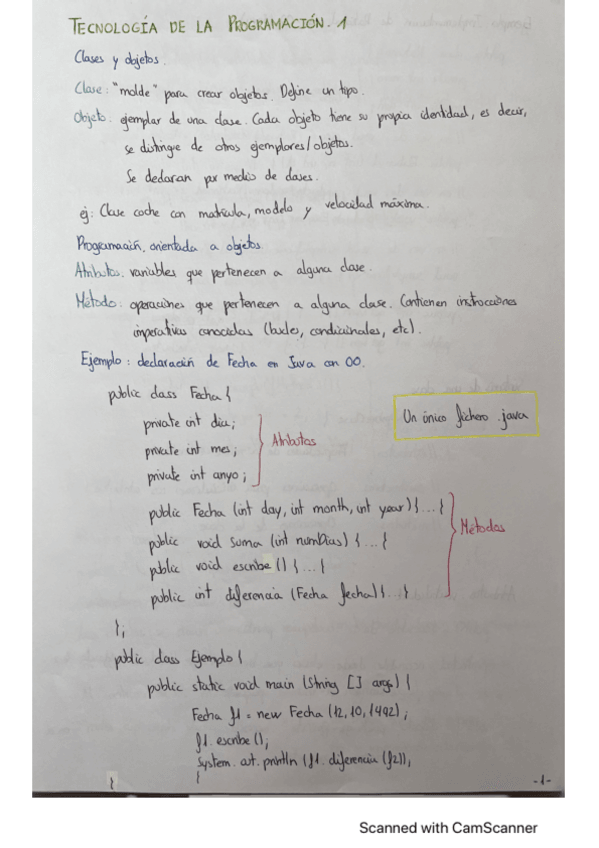 TECNOLOGÍA DE LA PROGRAMACIÓN. 1
Clases y objetos.
Clase: "molde" para crear objetos. Define un tipo.
Objeto: ejemplar de una clase. Cada objeto tiene su propia identidad, es decir,
se distingue de otros ejemplares/objetos.
Se declaran por medio de clases.
ej: Clase coche con matrícula, modelo y velocidad máxima.
Programación orientada a objetos
Atributos: variables que pertenecen a alguna clase.
Método: operaciones que pertenecen a alguna clase. Contienen instrucciones
imperativas conocidas (bucles, condicionales, etc).
Ejemplo: declaración de Fecha en Java con OO.
public class Fecha {
Un único fichero .java
private int dia;
private int mes;
Atributos
private int anyo;
public Fecha (int day, int month, int year) {...}
public void suma (int numDias) {...}
Métodos
public void escribe () {...}
public int diferencia (Fecha fecha) {...}
};
public class Ejemplo {
public static void main (String [] args) {
Fecha f1 = new Fecha (12, 10, 1492);
f1. escribe ();
System. out. println (f1. diferencia (f2));
}
}
-1-
Scanned with CamScanner